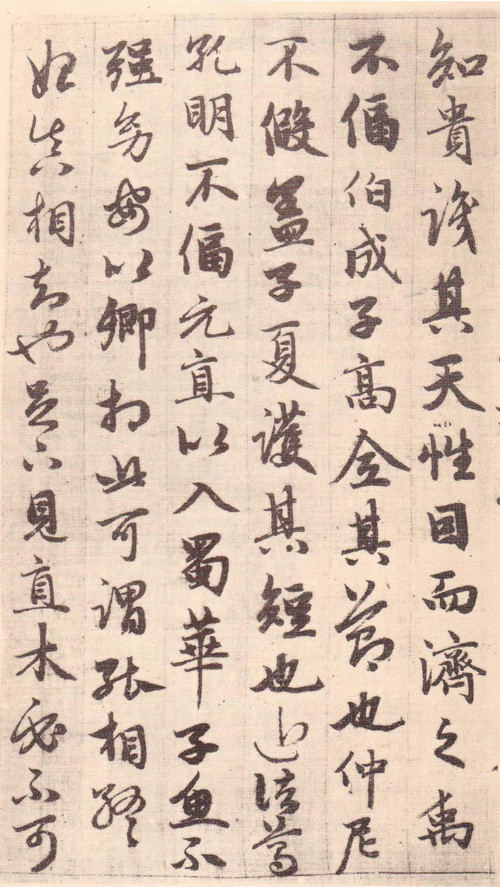 知貴識其天性因而濟之禹
不偪伯成子高全其節也仲尼
不假盖子夏護其短也近諸葛
孔明不偪元直以入蜀華子魚不
强幼安以卿相此可謂能相終
始真相知也足下見直木必不可